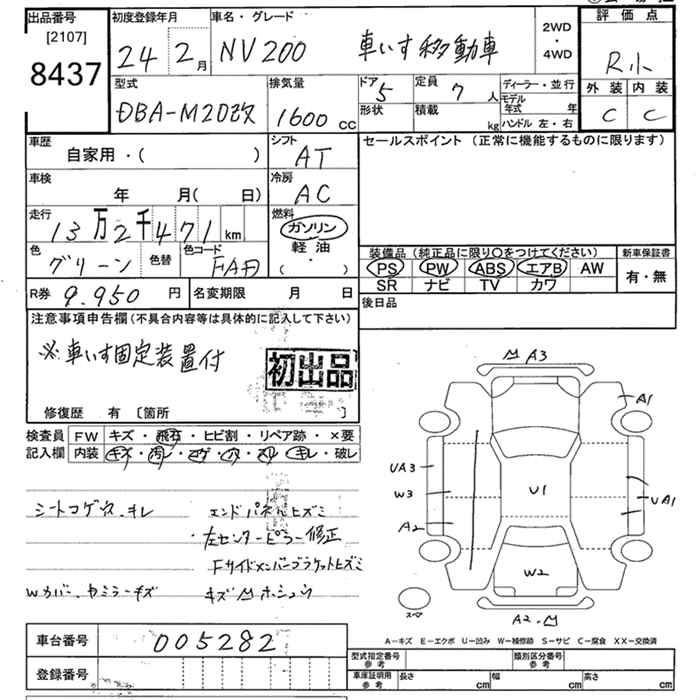 出品番号
[2107]
8437
初度登録年月
24 2月
車名・グレード
NV200 車いす移動車
2WD
・
4WD
評価点
R小
外装 内装
C C
型式
DBA-M20改
排気量
1600 cc
ドア 5
形状
定員 7 人
積載 kg
ディーラー・並行
モデル年式 年
ハンドル 左・右
車歴
自家用・( )
シフト
AT
セールスポイント (正常に機能するものに限ります)
車検
年 月( 日)
冷房
AC
走行
13万2千471km
燃料
ガソリン
軽油
( ・ )
色
グリーン
色替
色コード
FAA
装備品 (純正品に限り○をつけてください)
PS PW ABS エアB AW
SR ナビ TV カワ
新車保証書
有・無
R券 9.950円
名変期限 月 日
後日品
注意事項申告欄 (不具合内容等は具体的に記入して下さい)
※車いす固定装置付
初出品
修復歴 有 [箇所 ]
検査員
記入欄
FW キズ・飛石・ヒビ割・リペア跡・×要
内装 キズ・汚レ・コゲ・穴・スレ・キレ・破レ
シートコゲ穴.キレ
エンドパネルヒズミ
左センターピラー修正
Fサイドメンバーブラケットヒズミ
Wカバー.
キズ凹ホシュウ
A3
A1
UA3
W3
A2
U1
UA1
W2
スペア
A2.凹
A−キズ E−エクボ U−凹み W−補修跡 S−サビ C−腐食 XX−交換済
車台番号 005282
登録番号
型式指定番号
参考
類別区分番号
参考
車庫証明用
参考
長さ cm
幅 cm
高さ cm